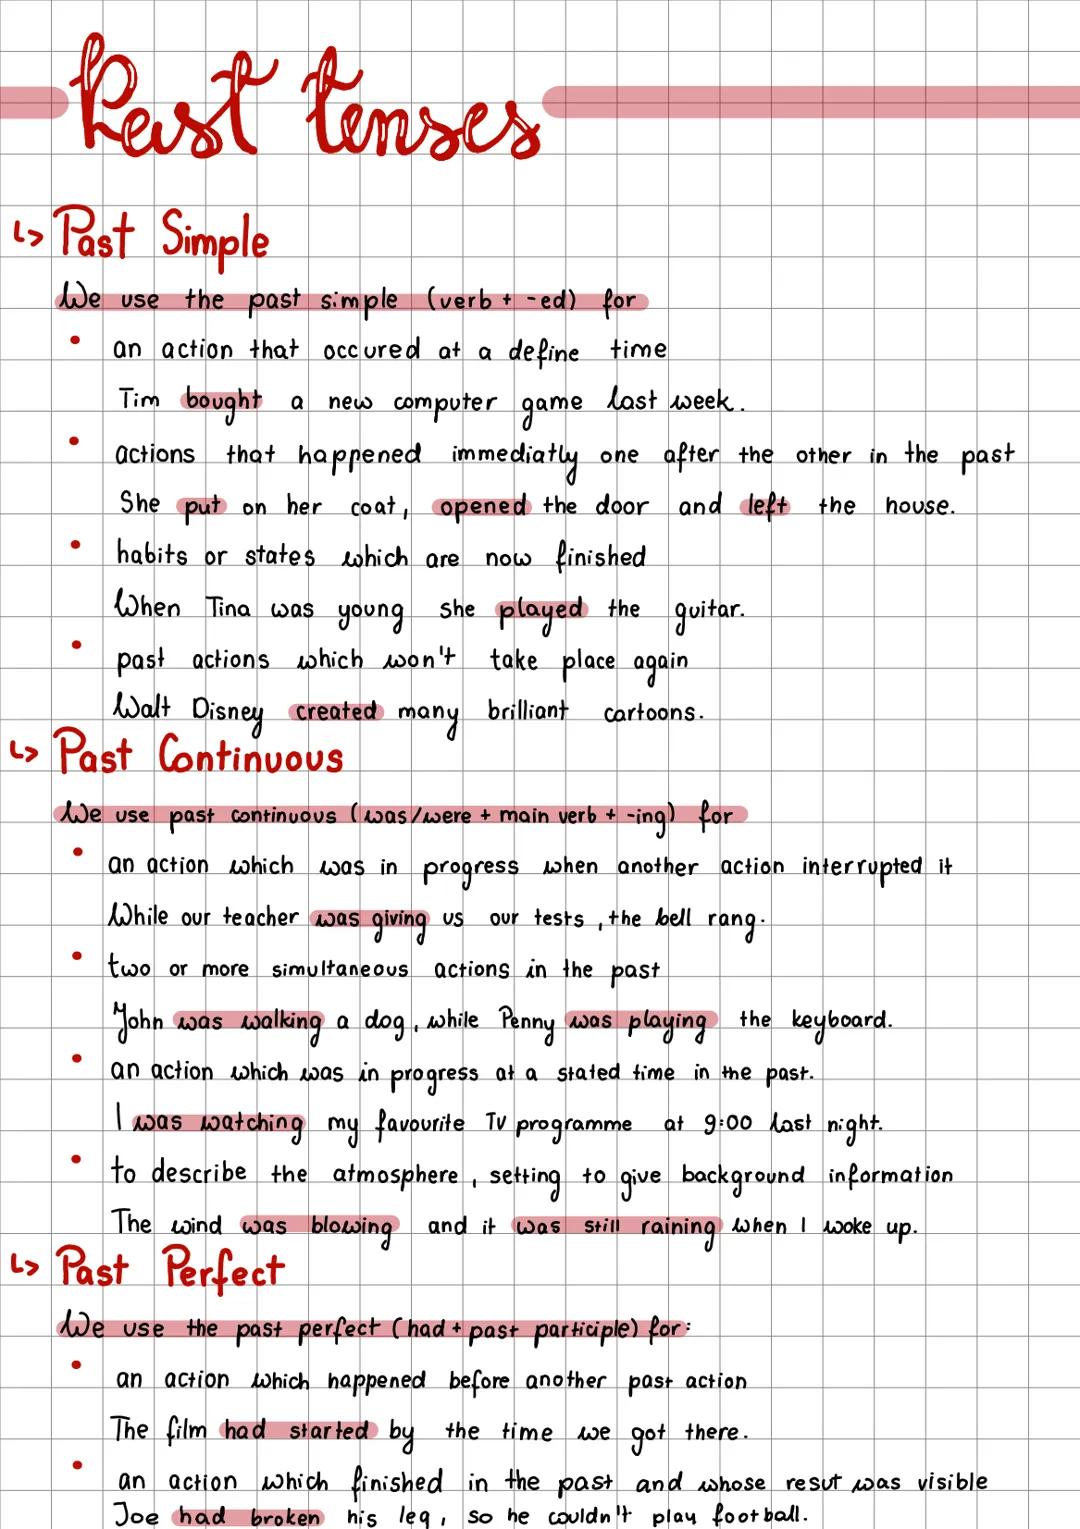 Past tenses
↳ Past Simple
We use the past simple (verb + -ed) for
• an action that occured at a define time
Tim bought a new computer game last week.
• actions that happened immediatly one after the other in the past
She put on her coat, opened the door and left the house.
• habits or states which are now finished
When Tina was young she played the guitar.
• past actions which won't take place again
Walt Disney created many brilliant cartoons.
↳ Past Continuous
We use past continuous (was/were + main verb + -ing) for
• an action which was in progress when another action interrupted it
While our teacher was giving us our tests, the bell rang.
• two or more simultaneous actions in the past
John was walking a dog, while Penny was playing the keyboard.
• an action which was in progress at a stated time in the past.
I was watching my favourite TV programme at 9:00 last night.
• to describe the atmosphere, setting to give background information
The wind was blowing and it was still raining when I woke up.
↳ Past Perfect
We use the past perfect (had + past participle) for:
• an action which happened before another past action
The film had started by the time we got there.
• an action which finished in the past and whose resut was visible
Joe had broken his leg, so he couldn't play football.